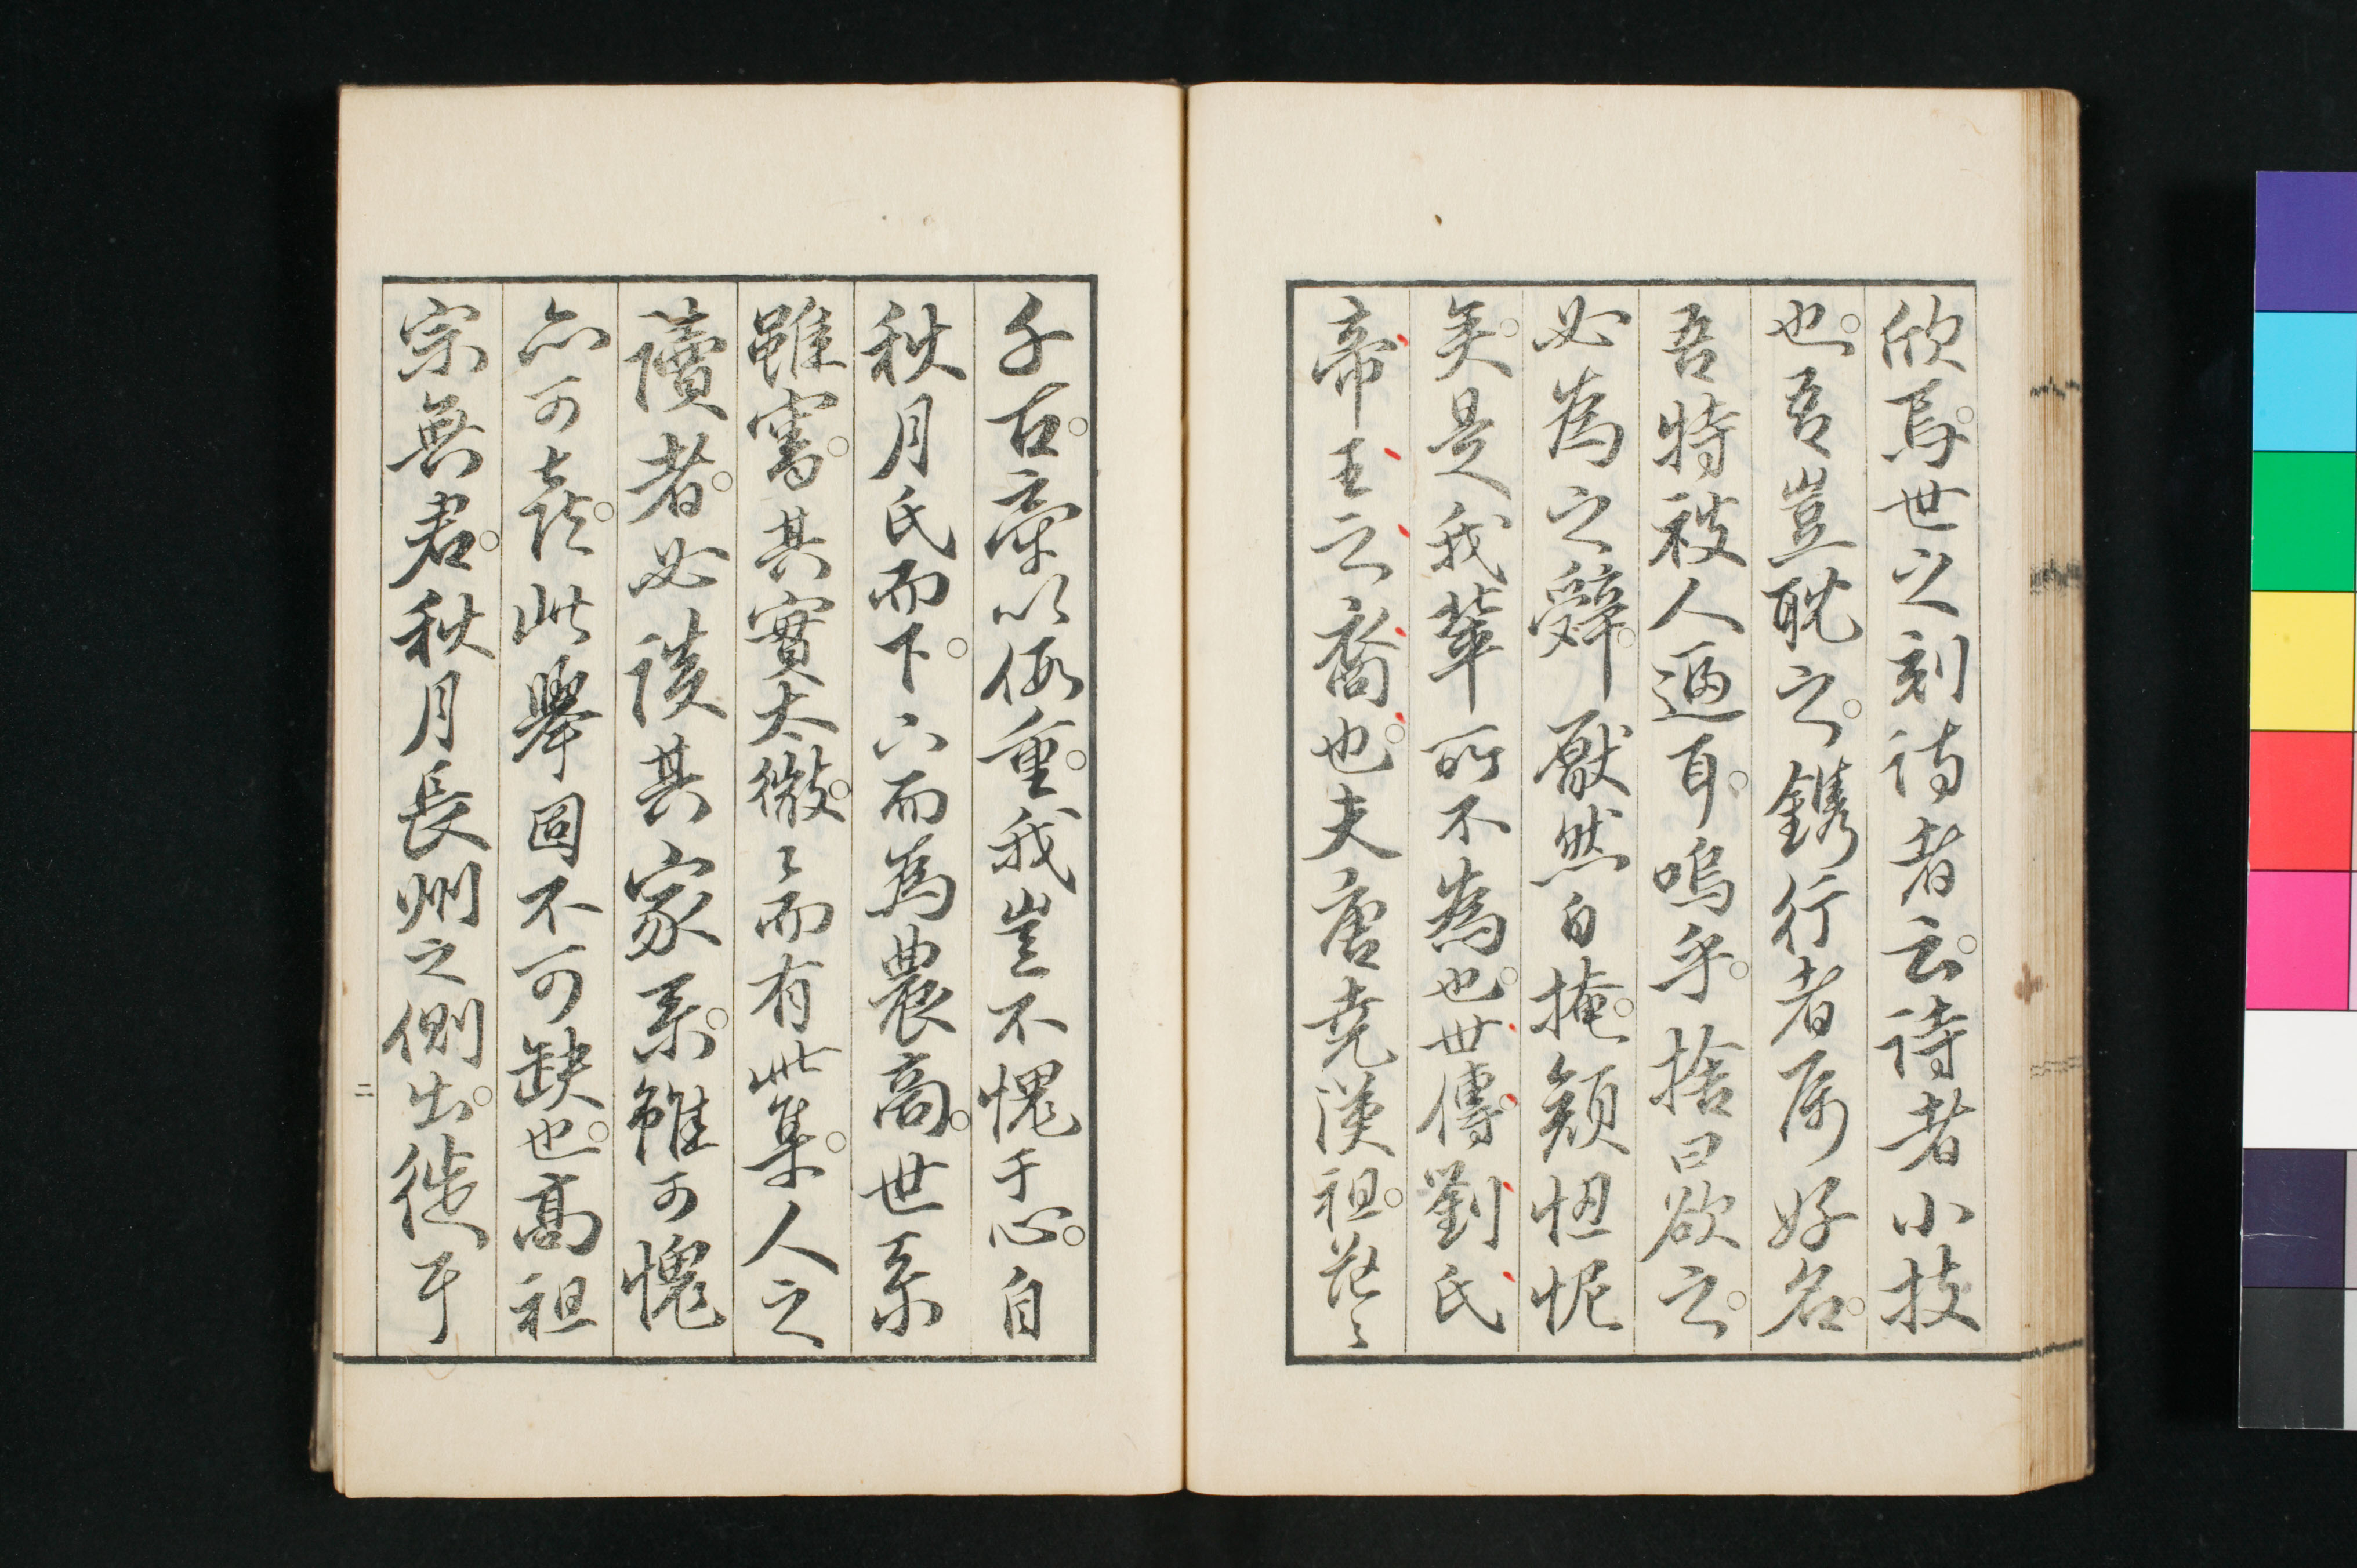 欣焉。世之刻詩者云。詩者小技
也。吾豈耽之。鐫行者属好名。
吾特被人逼耳。嗚乎。捨曰欲之。
必為之辭。厭然自掩。顏忸怩
矣。是我輩所不為也。世傳劉氏
帝王之裔也。夫唐堯漢祖。茫〻
千古。牽以何重。我豈不愧于心。自
秋月氏而下。六而為農商。世系
雖審。其實太微。〻而有此集。人之
讀者。必談其家系。雖可愧
亦可喜。此舉固不可缺也。高祖
宗無君。秋月長州之側出。徙于
二